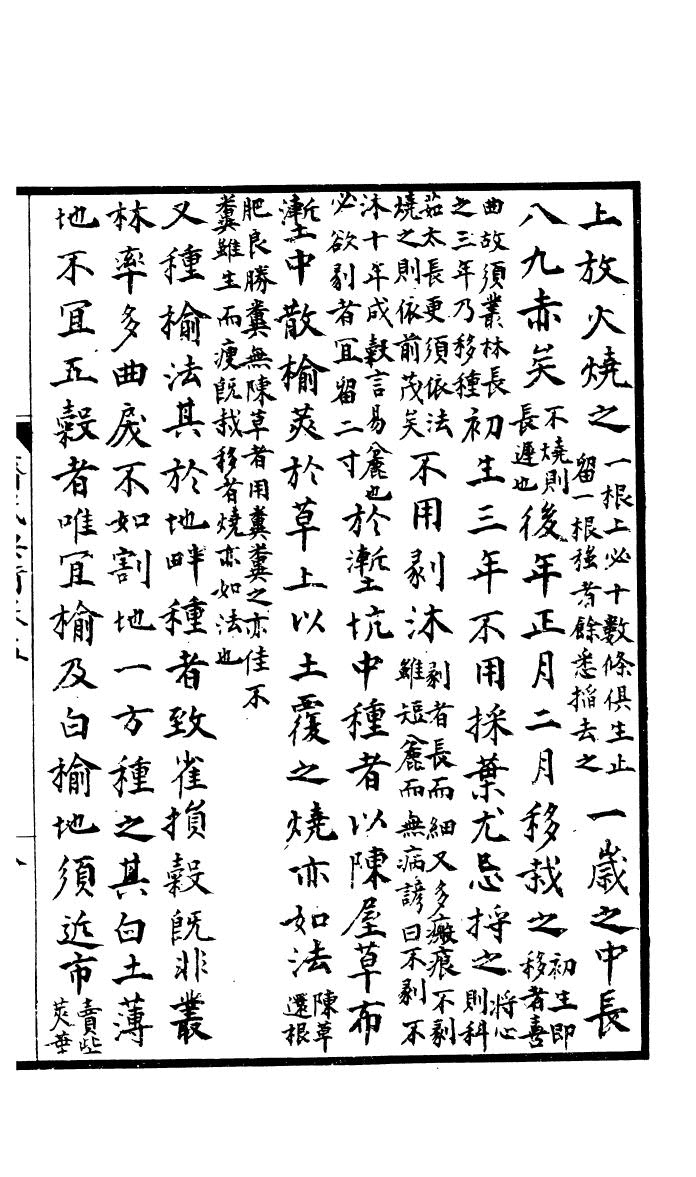 上放火燒之一根上必十數條俱生止留一根强者餘悉掐去之一歲之中長
八九赤矣不燒則長遲也後年正月二月移栽之初生即移者喜
曲故須叢林長之三年乃移種初生三年不用採葉尤忌捋之捋心則科
茹太長更須依法燒之則依前茂矣不用剥沐剥者長而細又多瘢痕不剥雖短麄而無病諺曰不剥不
沐十年成轂言易麄也必欲剥者宜留二寸於壍坑中種者以陳屋草布
壍中散榆莢於草上以土覆之燒亦如法陳草還根
肥良勝糞無陳草者用糞糞之亦佳不糞雖生而瘦既栽移者燒亦如法也
又種榆法其於地畔種者致雀損穀既非叢
林率多曲戾不如割地一方種之其白土薄
地不宜五穀者唯宜榆及白榆地須近市賣柴莢華